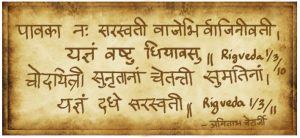 पावका नः सरस्वती वाजेभिर्वाजिनीवती ।
यज्ञं वष्टु धियावसु ॥ Rigveda 1/3/10
चोदयित्री सुनृतानां चेतन्ती सुमतिनां ।
यज्ञं दधे सरस्वती ॥ Rigveda 1/3/11